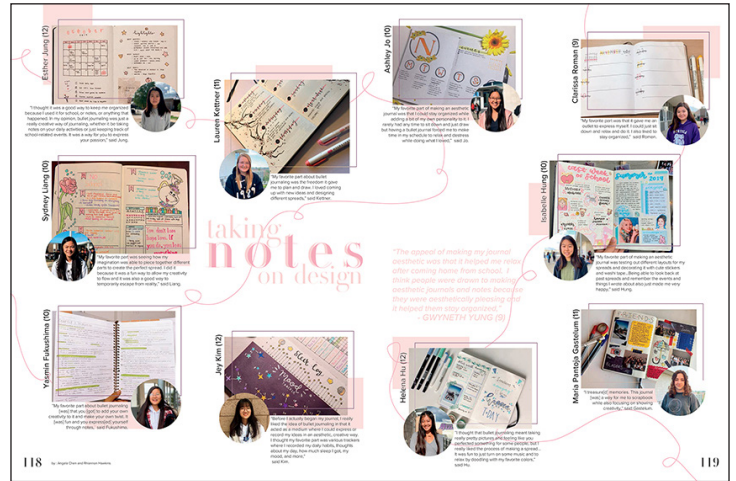 Esther Jung (12)
"I thought it was a good way to keep me organized
because I used it for school, or notes, or anything that
happened. In my opinion, bullet journaling was just a
really creative way of journaling, whether it be taking
notes on your daily activities or just keeping track of
school-related events. It was a way for you to express
your passion," said Jung.
Lauren Kettner (11)
"My favorite part of bullet
journaling was the freedom it gave
me to plan and draw. I loved coming
up with new ideas and designing
different spreads," said Kettner.
Sydney Liang (10)
"My favorite part was seeing how my
imagination was able to piece together different
parts to create the perfect spread. I did it
because it was a fun way to allow my creativity
to flow and it was also a good way to
temporarily escape from reality," said Liang.
Yasmin Fukushima (10)
"My favorite part about bullet journaling
[was] that you [got] to add your own
creativity to it and make your own twist. It
[was] fun and you express[ed] yourself
through notes," said Fukushima.
Jey Kim (12)
Sleep Log
Mood
"Before I actually began my journal, I really
liked the idea of bullet journaling in that it
acted as a medium where I could express or
record my ideas in an aesthetic, creative way.
I thought my favorite part was various trackers
where I recorded my daily habits, thoughts
about my day, how much sleep I got, my
mood, and more,"
said Kim.
taking
notes
on design
118
by: Angela Chen and Rhiannon Hawkins
Ashley Jo (10)
"My favorite part of making an aesthetic
journal was that I could stay organized while
adding a bit of my own personality to it. I
rarely had any time to sit down and just draw
but having a bullet journal forced me to make
time in my schedule to relax and destress
while doing what I loved," said Jo.
Clarissa Roman (9)
"My favorite part was that it gave me an
outlet to express myself. I could just sit
down and relax and do it. I also liked to
stay organized," said Roman.
Isabelle Hung (10)
"My favorite part of making an aesthetic
journal was testing out different layouts for my
spreads and decorating it with cute stickers
and washi tape. Being able to look back at
past spreads and remember the events and
things I wrote about also just made me very
happy," said Hung.
"The appeal of making my journal
aesthetic was that it helped me relax
after coming home from school. I
think people were drawn to making
aesthetic journals and notes because
they were aesthetically pleasing and
it helped them stay organized,"
- GWYNETH YUNG (9)
Helena Hu (12)
"I thought that bullet journaling meant taking
really pretty pictures and feeling like you
perfected something for some people, but I
really liked the process of making a spread...
It was fun to just turn on some music and to
relax by doodling with my favorite colors,"
said Hu.
Maria Pantoja Gastelum (11)
FRIENDS
"I treasure[d] memories. This journal
[was] a way for me to scrapbook
while also focusing on showing
creativity," said Gastelum.
119